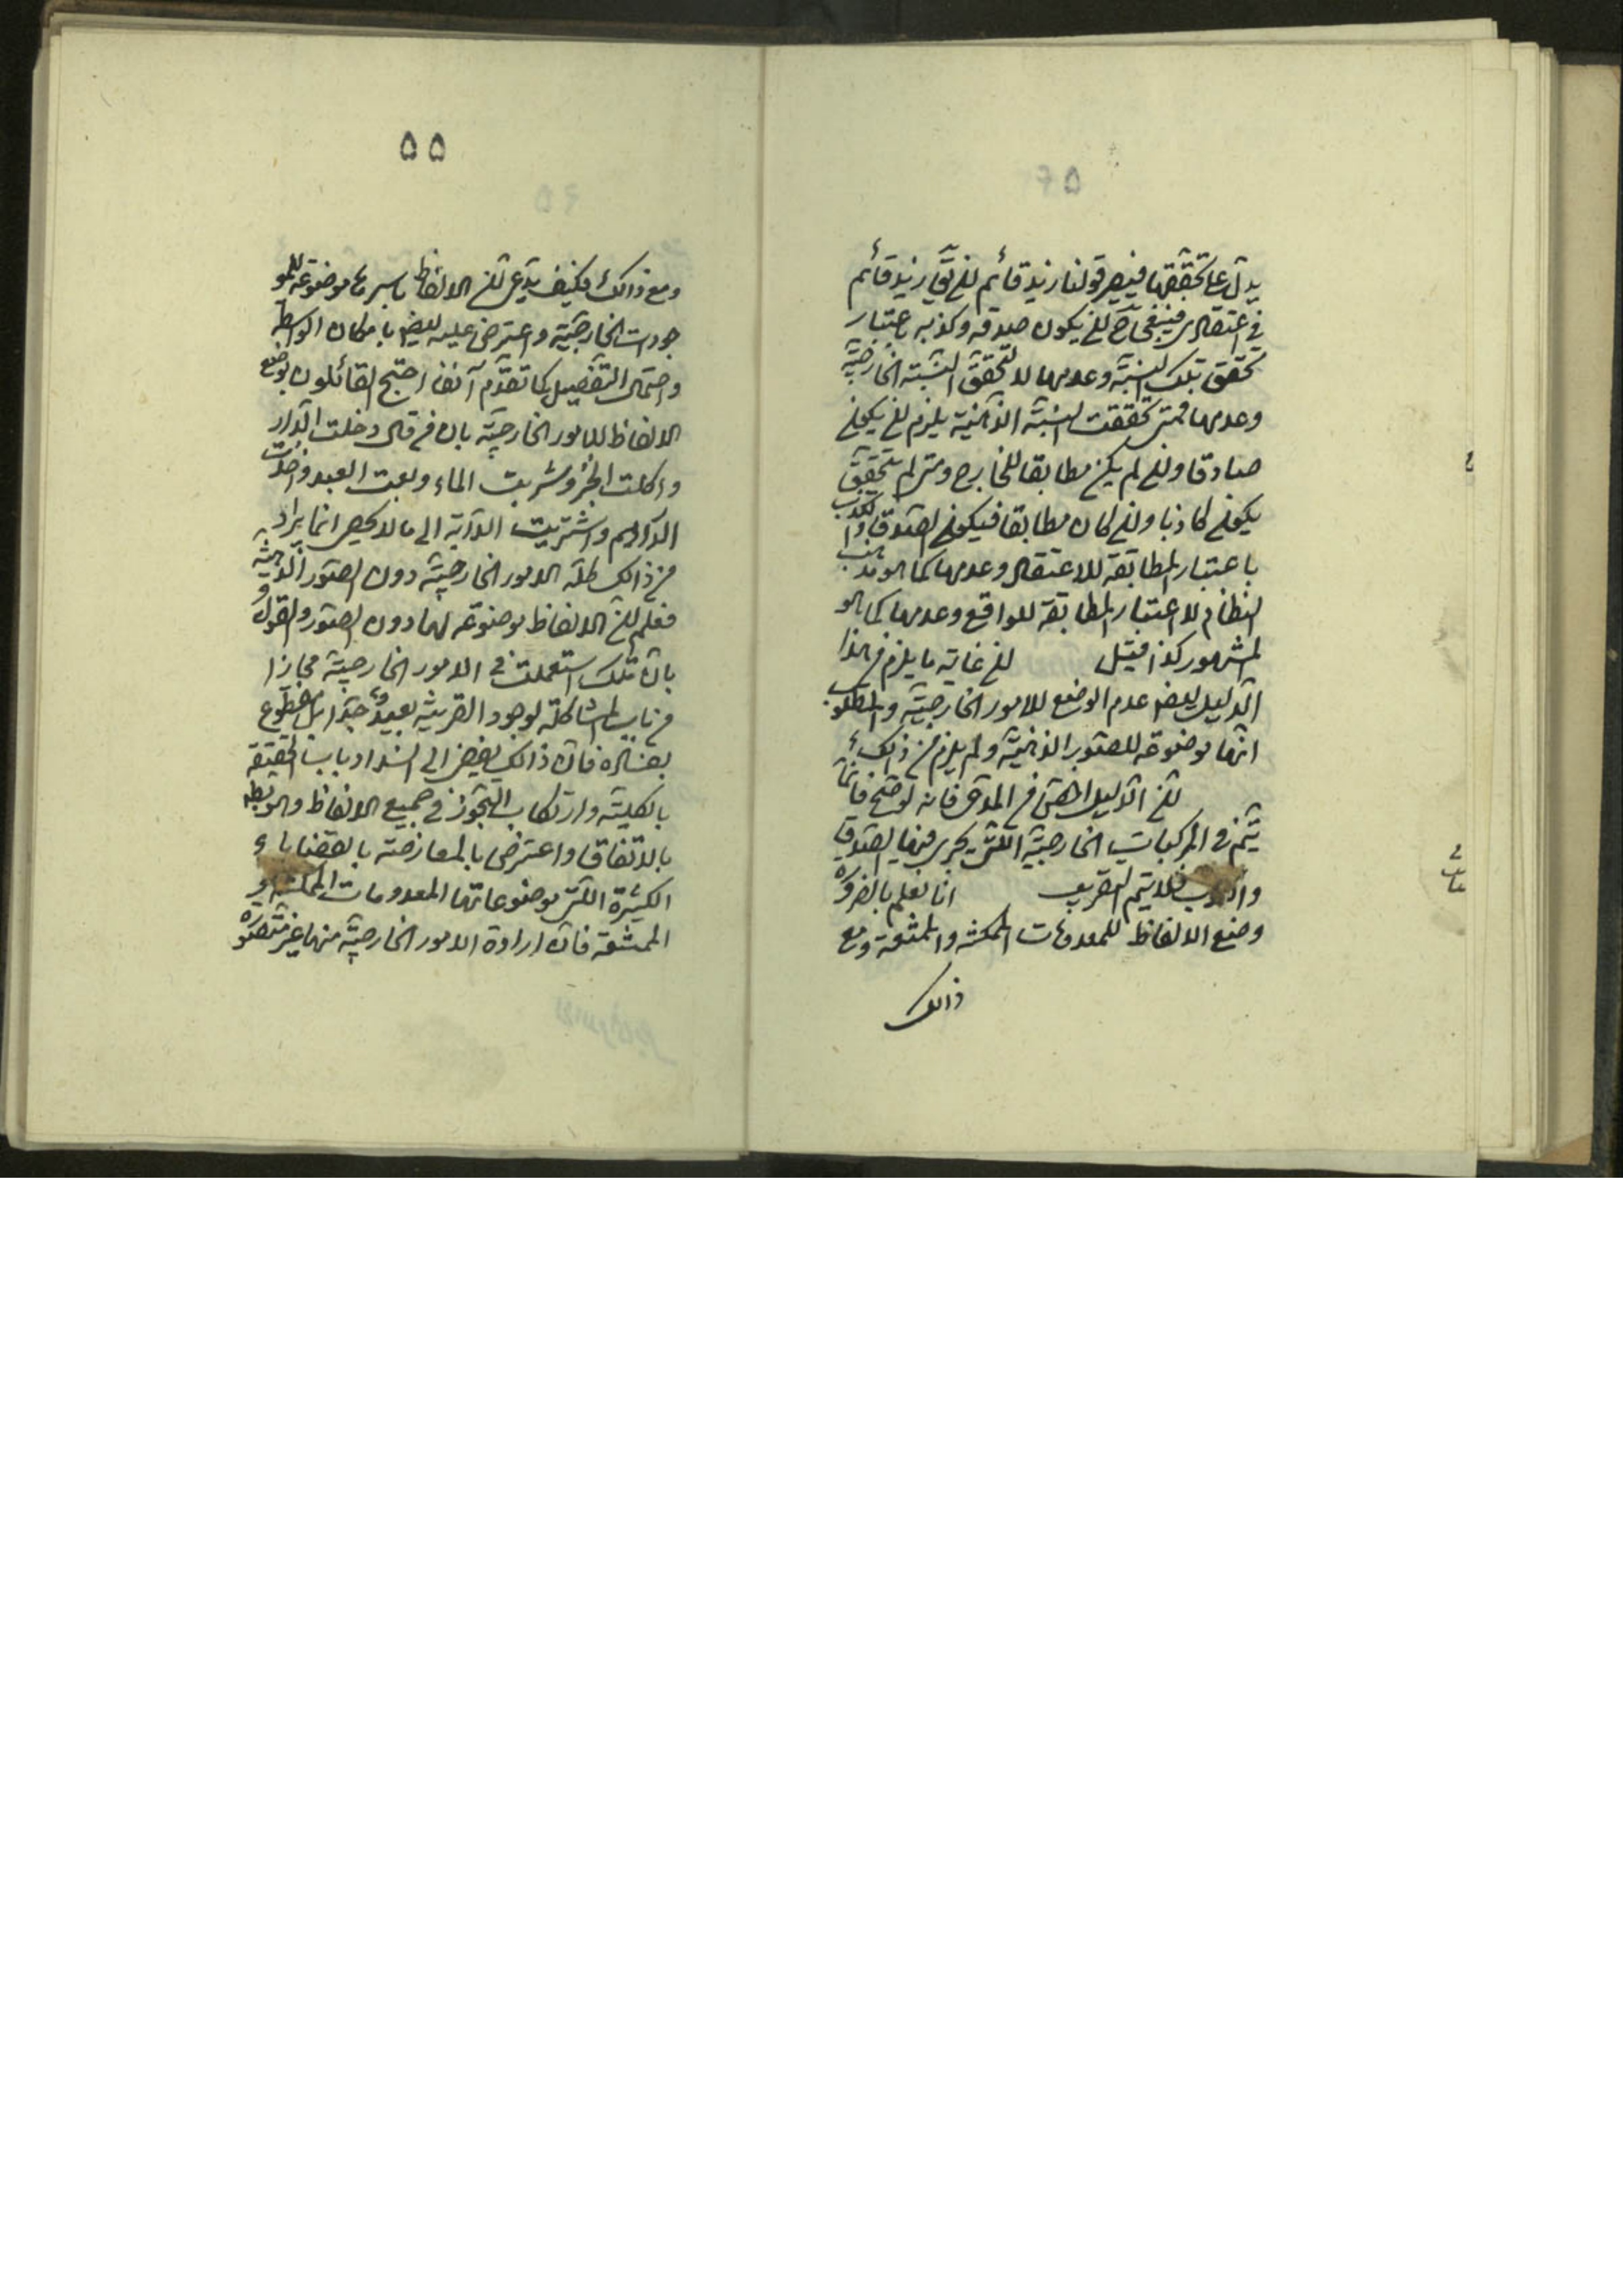 يدلّ على تحقّقها فيصير قولنا زيد قائم ان يقال زيد قائم
في اعتقادى فينبغي ح ان يكون صدقه وكذبه باعتبار
تحقق تلك النسبة وعدمها لا تحقّق النسبة الخارجيّة
وعدمها فمتى تحققت النسبة الذّهنيّة يلزم ان يكون
صادقا وان لم يكن مطابقا للخارج ومتى لم تتحقّق
يكون كاذبا وان كان مطابقا فيكون الصّدق والكذب
باعتبار المطابقة للاعتقاد وعدمها كما هو مذهب
النظّام لا اعتبار المطابقة للواقع وعدمها كما هو
المشهور كذا قيل ان غاية ما يلزم من هذا
الدّليل ايضا عدم الوضع للامور الخارجيّة والمطلوب
انّها موضوعة للصّور الذهنيّة ولم يلزم من ذالك
انّ الدّليل اخصّ من المدّعى فانه لو صحّ فانّما
يتمّ في المركبات الخارجيّة الّتى يجرى فيها الصّدق
والكذب فلا يتمّ التقريب انا نعلم بالضرورة
وضع الالفاظ للمعدومات الممكنة والممتنعة ومع
ذالك
۵۵
ومع ذالك فكيف يدّعى انّ الالفاظ باسرها موضوعة للمو
جودات الخارجيّة واعترض عليه ايضا بامكان الواسطة
واحتمال التّفصيل كما تقدّم آنفا احتج القائلون بوضع
الالفاظ للامور الخارجيّة بان من قال دخلت الدّار
واكلت الخبز وشربت الماء وبعت العبد واخذت
الدّراهم واشتريت الدّابّة الى ما لا يحصى انما يراد
من ذالك كلّه الامور الخارجيّة دون الصّور الذّهنيّة
فعلم انّ الالفاظ موضوعة لها دون الصّور والقول
بانّ تلك استعملت في الامور الخارجيّة مجازا
من باب المشاكلة لوجود القرينة بعيد جدّا بل مقطوع
بفساده فانّ ذالك يفضى الى انسداد باب الحقيقة
بالكليّة وارتكاب التّجوّز في جميع الالفاظ وهو باطل
بالاتّفاق واعترض بالمعارضة بالقضايا
الكثيرة الّتى موضوعاتها المعدومات الممكنة و
الممتنعة فانّ ارادة الامور الخارجيّة منها غير متصوّرة